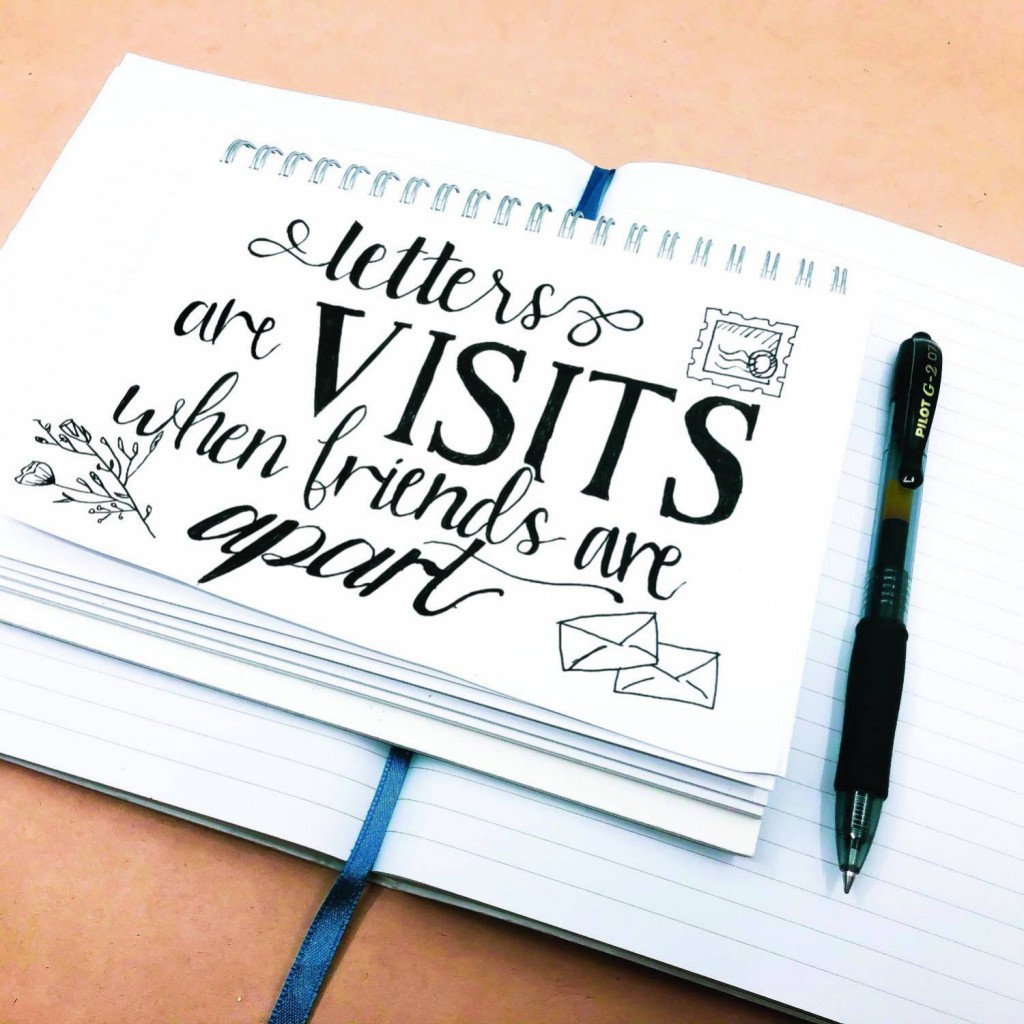 letters
are VISITS
when friends are
apart
PILOT G-2 07